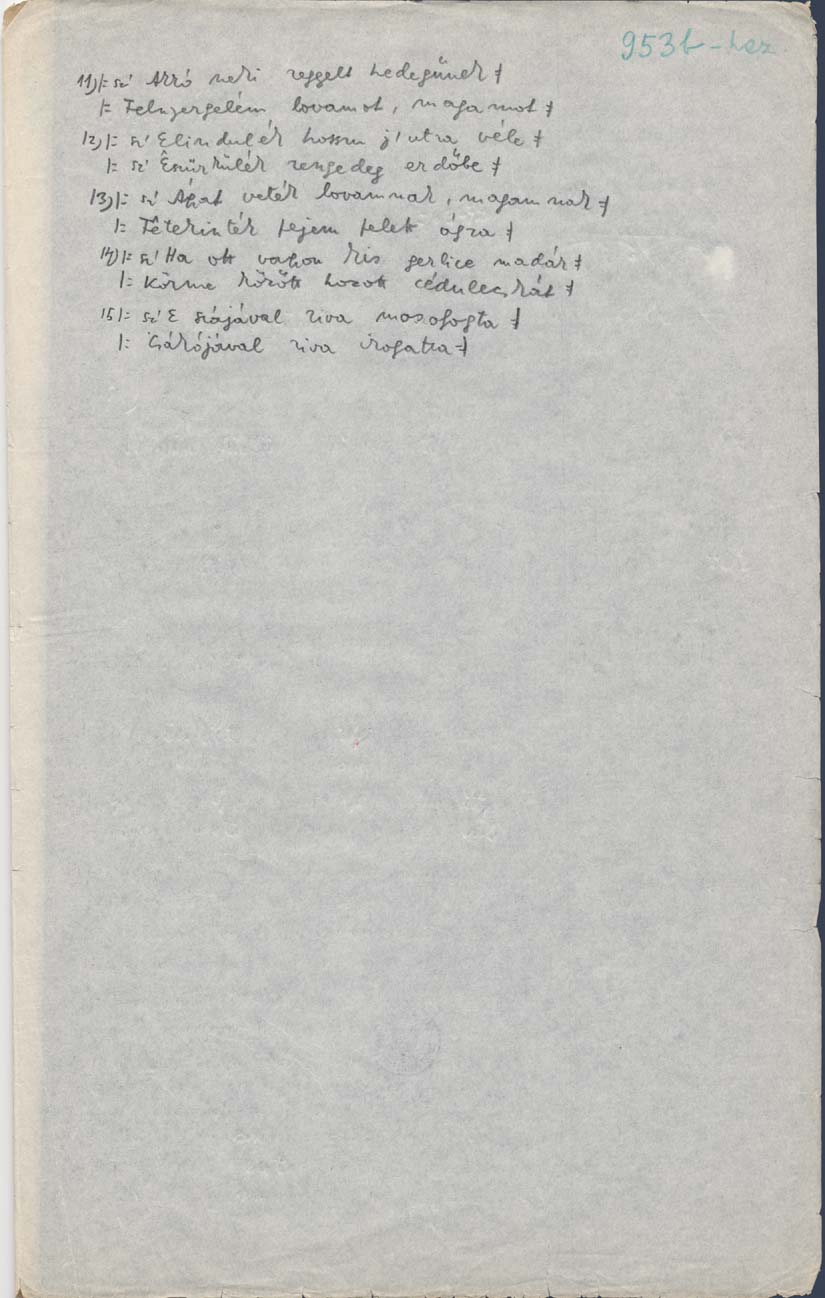 953b-hez.
11) |: sz' Arró neki reggelt hedegünek :|
|: Felnyergelém lovamot, magamot :|
12) |: sz' Elindulék hosszu j'utra véle :|
|: sz' Ēszürkülék rengedeg erdőbe :|
13) |: sz' Ágyat veték lovamnak, magamnak :|
|: Fétekinték fejem felett ágra :|
14) |: sz' Ha ott vagyon kis gerlice madár :|
|: Körme között hozott cédulecskát :|
15 |: sz' E szájával ríva mozsfogta :|
|: Csárójával ríva irogatta :|